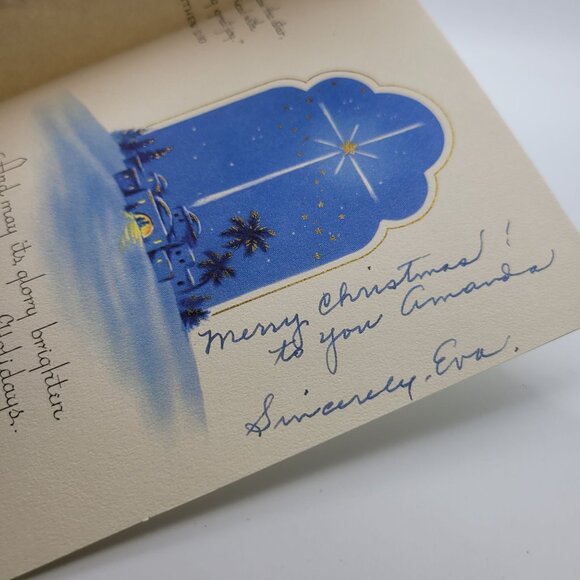 And may its glory brighten
Holidays.
Merry Christmas!
to you Amanda
Sincerely, Eva.